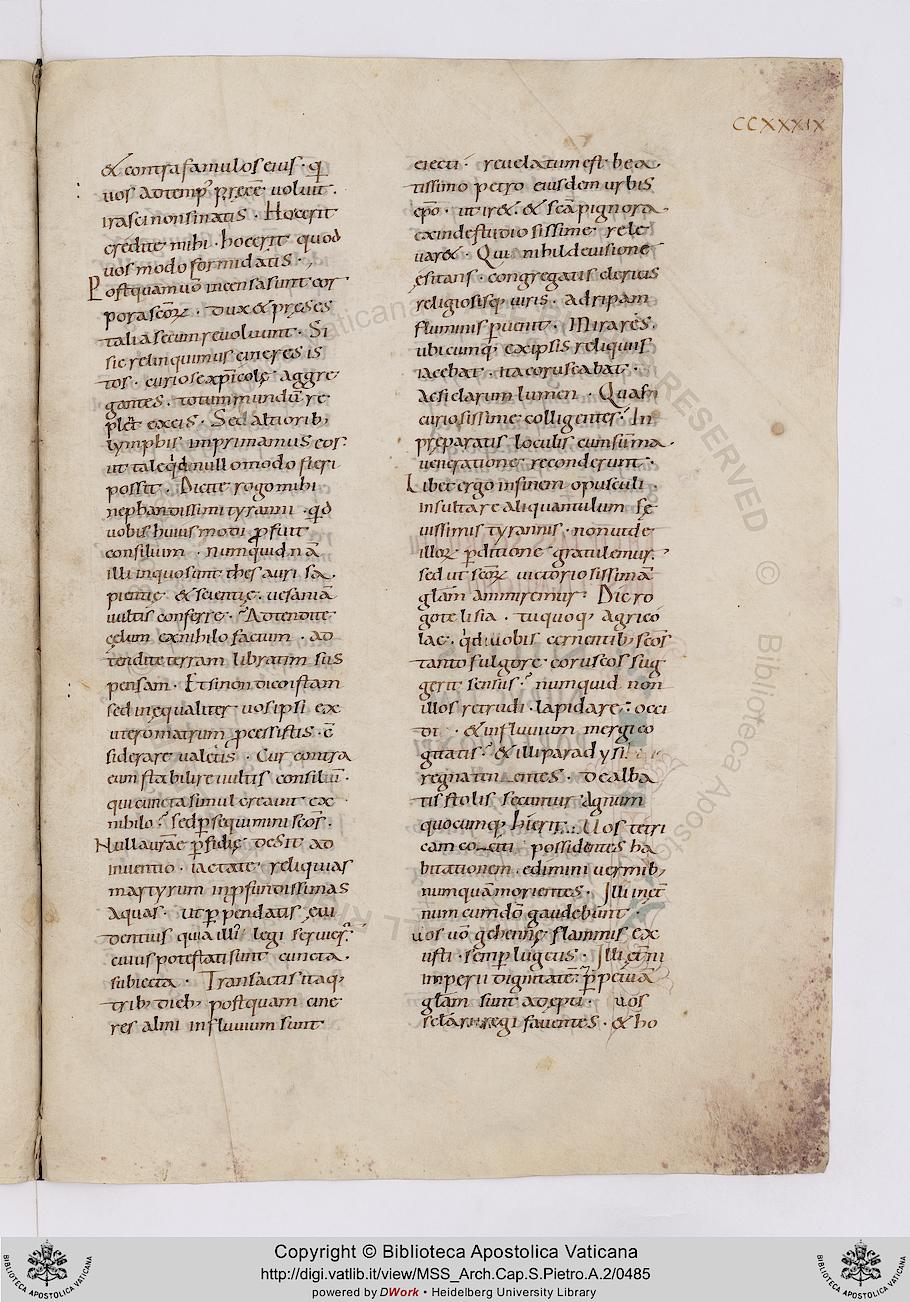 CCXXXIX
& contra famulos eius · q̃
uos ad temp' p̄cẽ uoluit ·
irasci non sinatis · Hoc erit
credite mihi · hoc erit quod
uos modo formidatis ·
Postquam uo incensa sunt cor
pora scōꝝ · dux & preses
talia secum reuoluunt · Si
sic relinquimus cineres is
tos · curiose xp̄icolę aggre
gantes · totum mundū re
plēt ex eis · Sed altiorib;
lymphis imprimamus eos ·
ut tale qd nullomodo fieri
possit · Dicite rogo mihi
nephandissimi tyranni · qd
uobis huiusmodi ꝓfuit
consilium · numquid nā
illi in quo sunt thesauri sa
pientię & scientię · uesaniā
uultis conferre · Adtendite
cęlum ex nihilo factum · ad
tendite terram libratim sus
pensam · Et si non dico istam
sed inęqualiter uos ipsi ex
utero matrum p̄cessistis · c̄
siderare ualetis · Cur contra
eum stabilire uultis consiliū ·
qui cuncta simul creauit ex
nihilo · sed ꝑsequimini scōs ·
Nulla ur̄ae ꝑfidię desit ad
inuentio · iactate reliquias
martyrum in ꝓfundissimas
aquas · ut ꝑpendatis eui
dentius quia illi' legi seruier̄
cuius potestati sunt cuncta ·
subiecta · Transactis itaq;
trib; dieb; postquam cine
res almi in fluuium sunt
eiecti · reuelatum est bea
tissimo petro eiusdem urbis
ep̄o · ut ir& · & scā pignora
exinde studiosissime rele
uar& · Qui nihil de uisione
ęsitans · congregatis clericis
religiosisq; uiris · ad ripam
fluminis ꝑuenit · Mirares ·
ubicumq; ex ipsis reliquiis
iacebat · ita coruscabat ·
ac si clarum lumen · Quas
curiosissime colligentes · In
pręparatis loculis cum sūma
ueneratione reconderunt ·
Libet ergo in finem opusculi ·
insultare aliquantulum sę
uissimis tyrannis · non ut de
illoꝝ ꝑditione gratulemur ·
sed ut scōꝝ uictoriosissimā
glām ammiremur · Dic ro
go te lisia · tu quoq; agrico
lae · qd uobis cernentib; scōs
tanto fulgore coruscos sug
gerit sensus · numquid non
illos retrudi · lapidare · occi
di · & in fluuium mergi co
gitatis · & illi paradysi
regna tenentes · dealba
tis stolis secuntur agnum
quocumq; hierit · Uos tetri
cam possidentes ha
bitationem · edimini uermib;
numquā morientes · Illi in ęt
num cum dō gaudebunt ·
uos uō gehennę flammis ex
usti · semꝑ lugetis · Illi ęt̄ni
imperii dignitatē ꝑpetuā
glām sunt adepti · uos
regi fauentes · & ho
Copyright © Biblioteca Apostolica Vaticana
http://digi.vatlib.it/view/MSS_Arch.Cap.S.Pietro.A.2/0485
powered by DWork • Heidelberg University Library